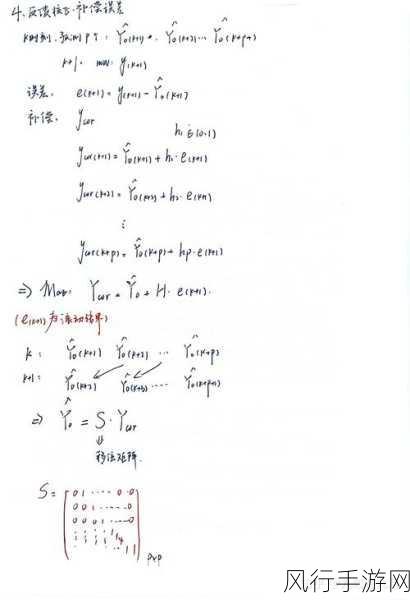 4. 反馈校正. 补偿误差
K时刻. 预测P个: Ŷ₀(k+1), Ŷ₀(k+2)... Ŷ₀(k+p)
k+1. y(k+1)
误差. e(k+1) = y(k+1) - Ŷ₀(k+1)
补偿. Ycor
hᵢ ∈ (0.1)
Ycor(k+1) = Ŷ₀(k+1) + h₁·e(k+1)
Ycor(k+2) = Ŷ₀(k+2) + h₂·e(k+1)
⋮
Ycor(k+p) = Ŷ₀(k+p) + hp·e(k+1)
⇒ Ycor = Ŷ₀ + H·e(k+1).
(e(k+1)为滚动结果)
k: Ŷ₀(k+1) Ŷ₀(k+2) ... Ŷ₀(k+p)
k+1: Ŷ₀(k+2) Ŷ₀(k+3) ..... Ŷ₀(k+p+1)
⇒ Ŷ₀ = S·Ycor
⇓
移位矩阵.
S = [0 1 ····· 0 0
0 0 1 ······ 0
0 0 0 1 ···· 0
1 1] p×p
风行手游网